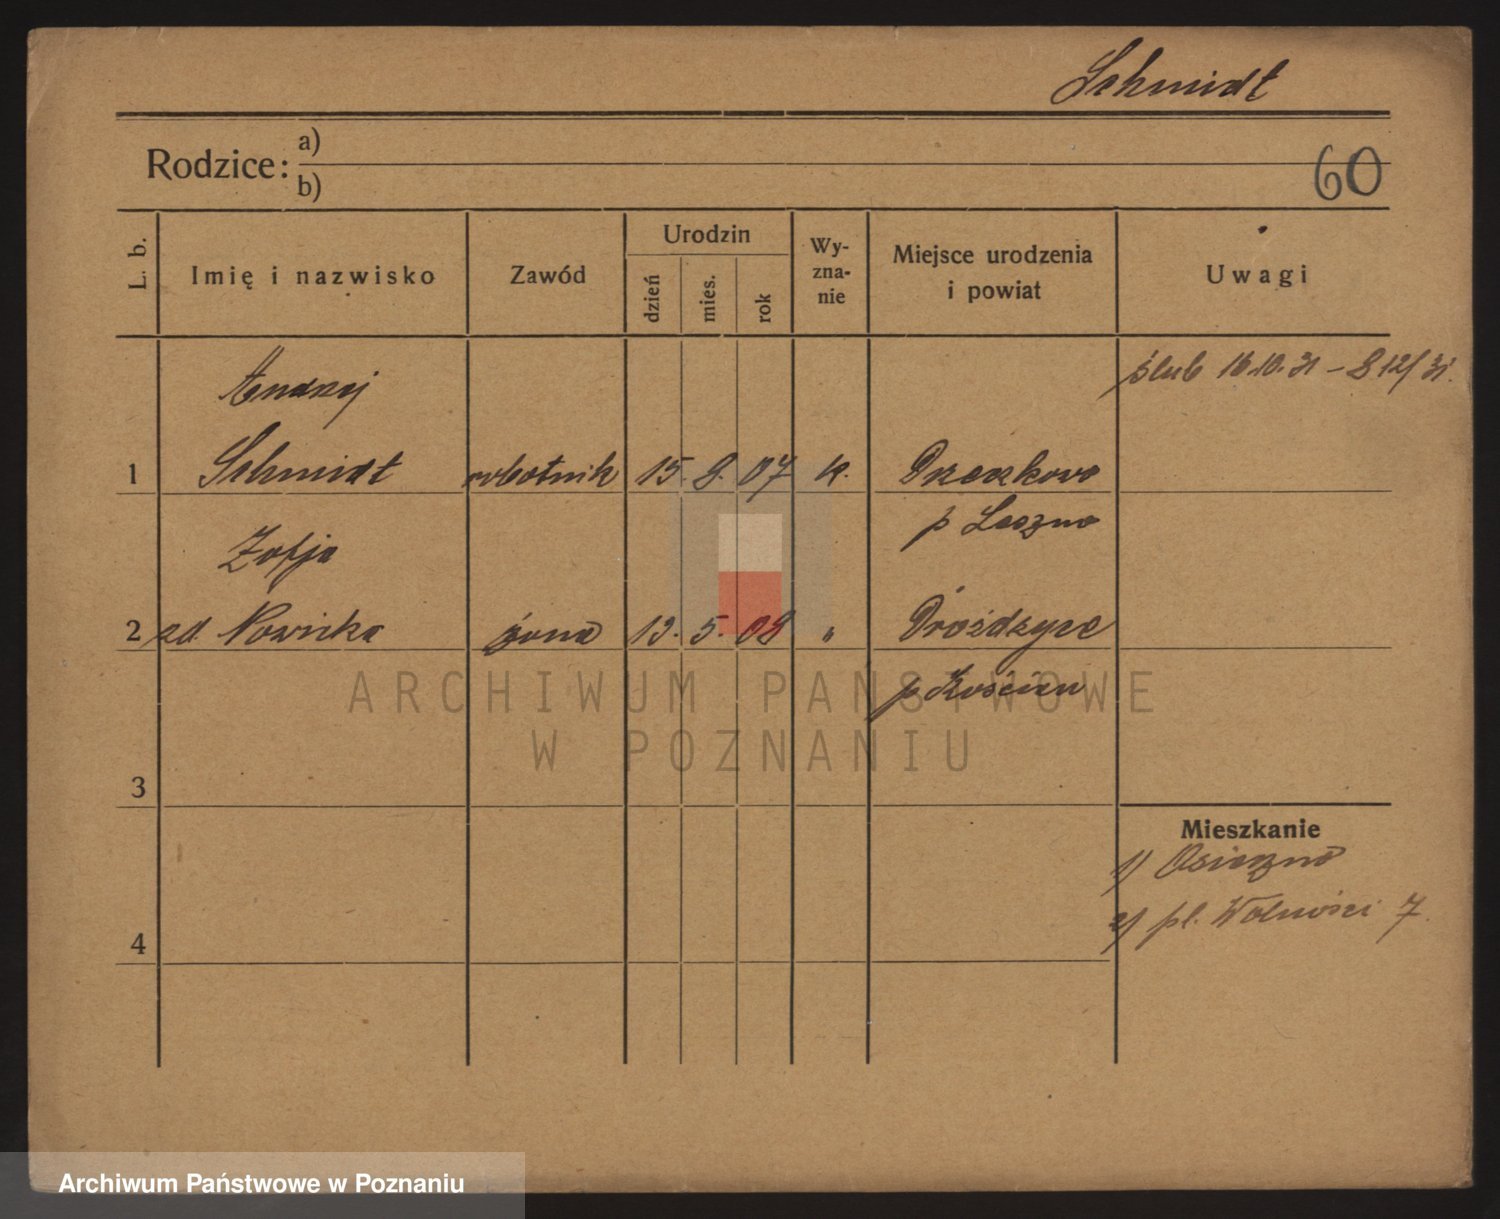 Schmidt
Rodzice: a)
b)
60
L. b.
Imię i nazwisko
Zawód
Urodzin
dzień
mies.
rok
Wy-
zna-
nie
Miejsce urodzenia
i powiat
Uwagi
ślub 16.10.31 – 8 12/31.
Andrzej
1 Schmidt robotnik 15. 8. 07 k.
p Leszno
Zofja
2 zd. Nowicka żona 13. 5. 08 "
p Kościan
ARCHIWUM PAŃSTWOWE
W POZNANIU
3
Mieszkanie
1) Osieczno
2) pl. Wolności 7.
4
Archiwum Państwowe w Poznaniu